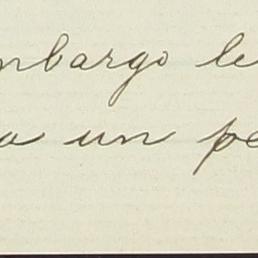 mbargo le
a un pe